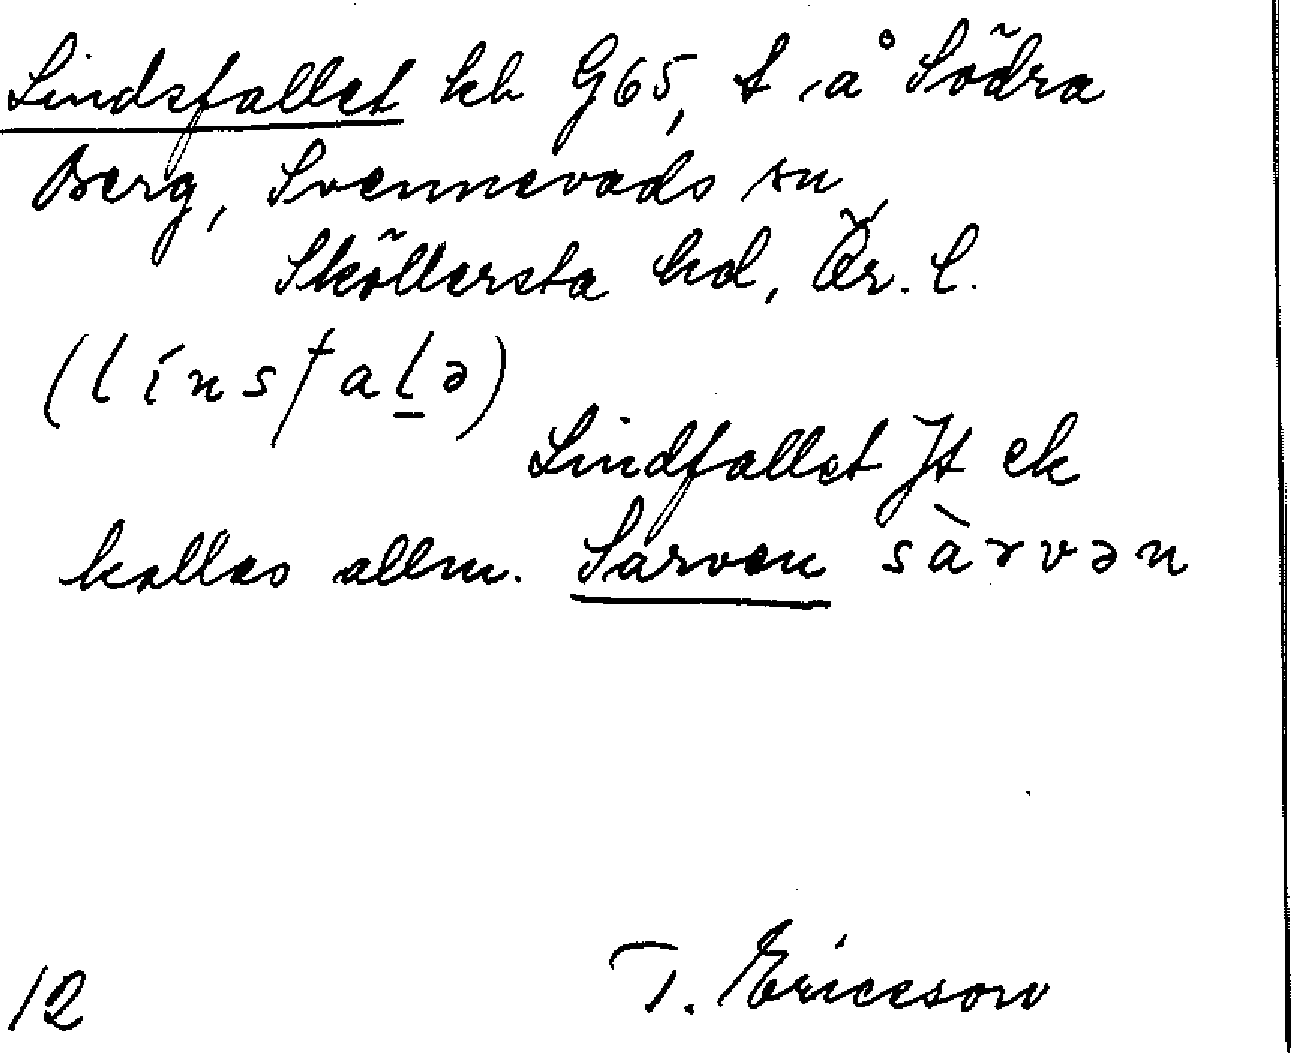 Lindsfallet hh G65, t. å Södra
Berg, Svennevads sn,
Sköllersta hd, Ör. l.
(línsfalə)
Lindfallet Jt ek
kallas allm. Sarven sàrvən
12 T. Ericsson